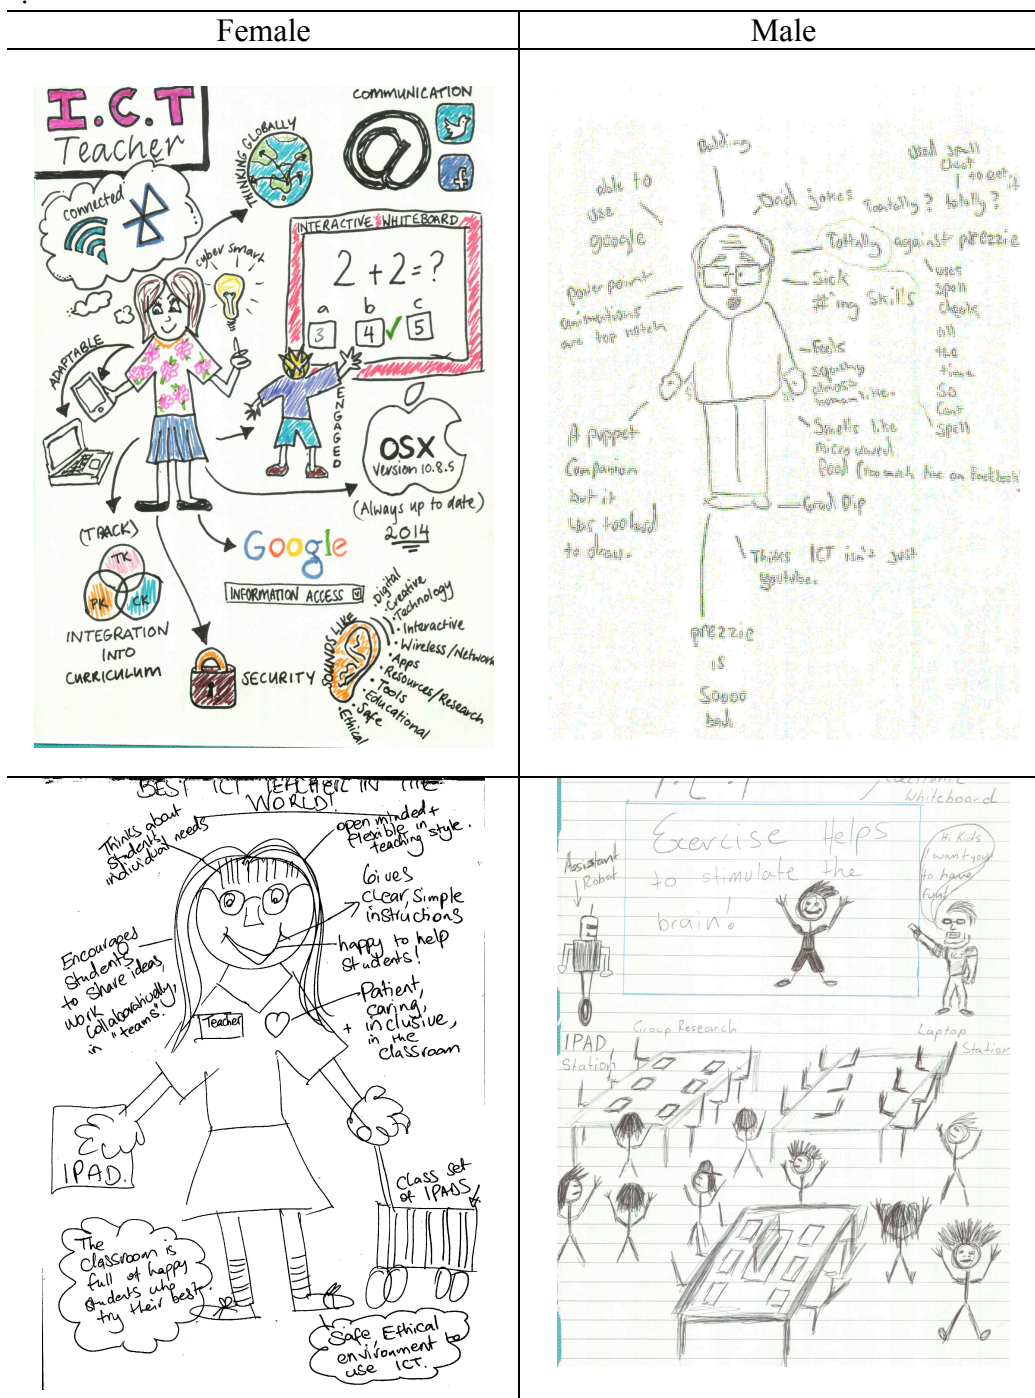 Female
Male
I.C.T
Teacher
COMMUNICATION
THINKING GLOBALLY
connected
cyber smart
INTERACTIVE WHITEBOARD
2 + 2 = ?
a b c
3 4 ✓ 5
ADAPTABLE
ENGAGED
OSX
Version 10.8.5
(Always up to date)
2014
(TPACK)
TK
PK CK
INTEGRATION
INTO
CURRICULUM
Google
INFORMATION ACCESS
SECURITY
SOUNDS LIKE
• Digital
• Creative
• Technology
• Interactive
• Wireless/Network
• Apps
• Resources/Research
• Tools
• Educational
• Safe
• Ethical
Balding
able to
use
google
Dad jokes
used spell
to get it
totally?
Tottally against prezzie
uses
spell
cheak
all
the
time
so
cant
spell
powerpoint
animations
are top notch
Sick
#ing skills
Feels
squishy
almost
human-like.
Smells like
microwaved
food (too much time on facebook)
A puppet
Companion
but it
was too hard
to draw.
Grad Dip
Thinks ICT isn't just
youtube.
prezzie
is
Soooo
bad
BEST ICT TEACHER IN THE
WORLD!
Thinks about
students
individual needs
open minded +
flexible in
teaching style.
Gives
clear, simple
instructions
happy to help
students!
Encourages
students
to share ideas,
work
collaboratively,
in "teams".
Teacher
Patient,
caring,
+ inclusive,
in the
classroom
IPAD.
class set
of IPADS
The
classroom is
full of happy
students who
try their best.
Safe, Ethical
environment to
use ICT.
I.C.T
Electronic
Whiteboard
Exercise Helps
to stimulate the
brain!
Assistant
Robot
Hi Kids
I want you
to have
fun!
IPAD
Station
Group Research
Laptop
Station